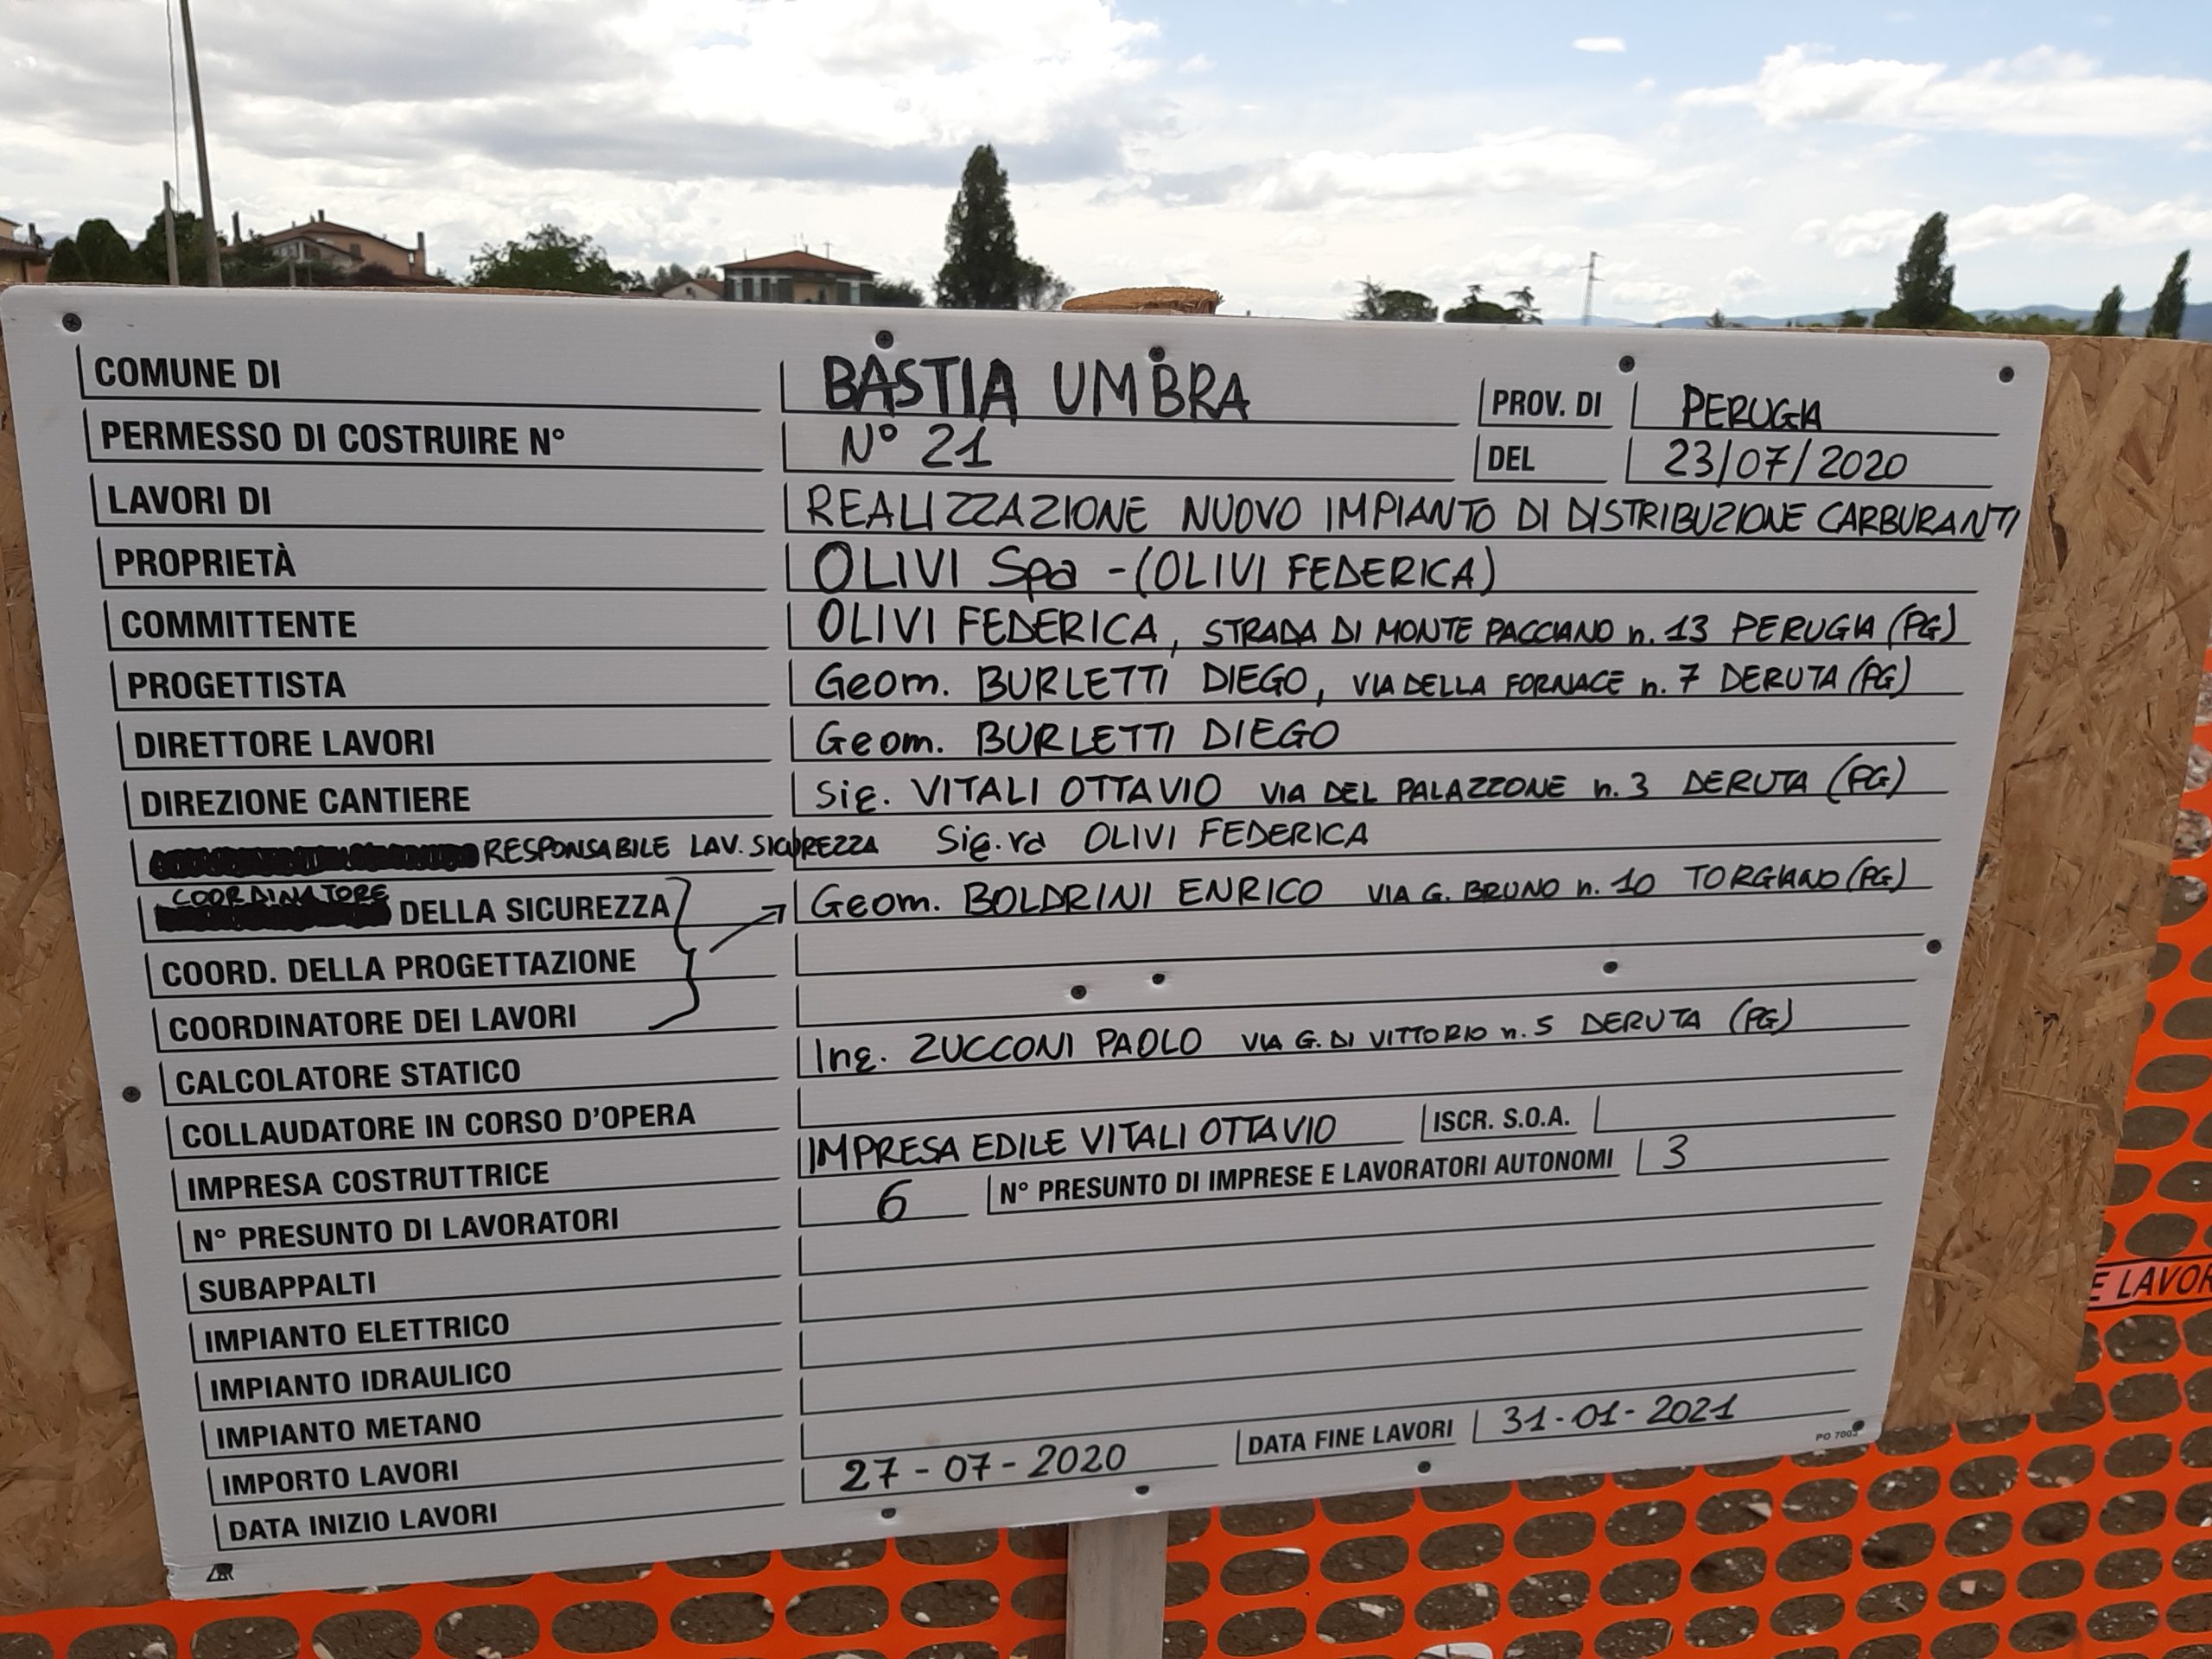 COMUNE DI BASTIA UMBRA PROV. DI PERUGIA
PERMESSO DI COSTRUIRE N° N° 21 DEL 23/07/2020
LAVORI DI REALIZZAZIONE NUOVO IMPIANTO DI DISTRIBUZIONE CARBURANTI
PROPRIETÀ OLIVI Spa - (OLIVI FEDERICA)
COMMITTENTE OLIVI FEDERICA, STRADA DI MONTE PACCIANO n. 13 PERUGIA (PG)
PROGETTISTA Geom. BURLETTI DIEGO, VIA DELLA FORNACE n. 7 DERUTA (PG)
DIRETTORE LAVORI Geom. BURLETTI DIEGO
DIREZIONE CANTIERE Sig. VITALI OTTAVIO VIA DEL PALAZZONE n. 3 DERUTA (PG)
RESPONSABILE LAV. SICUREZZA Sig.ra OLIVI FEDERICA
COORDINATORE DELLA SICUREZZA Geom. BOLDRINI ENRICO VIA G. BRUNO n. 10 TORGIANO (PG)
COORD. DELLA PROGETTAZIONE
COORDINATORE DEI LAVORI
CALCOLATORE STATICO Ing. ZUCCONI PAOLO VIA G. DI VITTORIO n. 5 DERUTA (PG)
COLLAUDATORE IN CORSO D'OPERA
IMPRESA COSTRUTTRICE IMPRESA EDILE VITALI OTTAVIO ISCR. S.O.A.
N° PRESUNTO DI LAVORATORI 6 N° PRESUNTO DI IMPRESE E LAVORATORI AUTONOMI 3
SUBAPPALTI
IMPIANTO ELETTRICO
IMPIANTO IDRAULICO
IMPIANTO METANO
IMPORTO LAVORI
DATA INIZIO LAVORI 27-07-2020 DATA FINE LAVORI 31-01-2021
E LAVOR